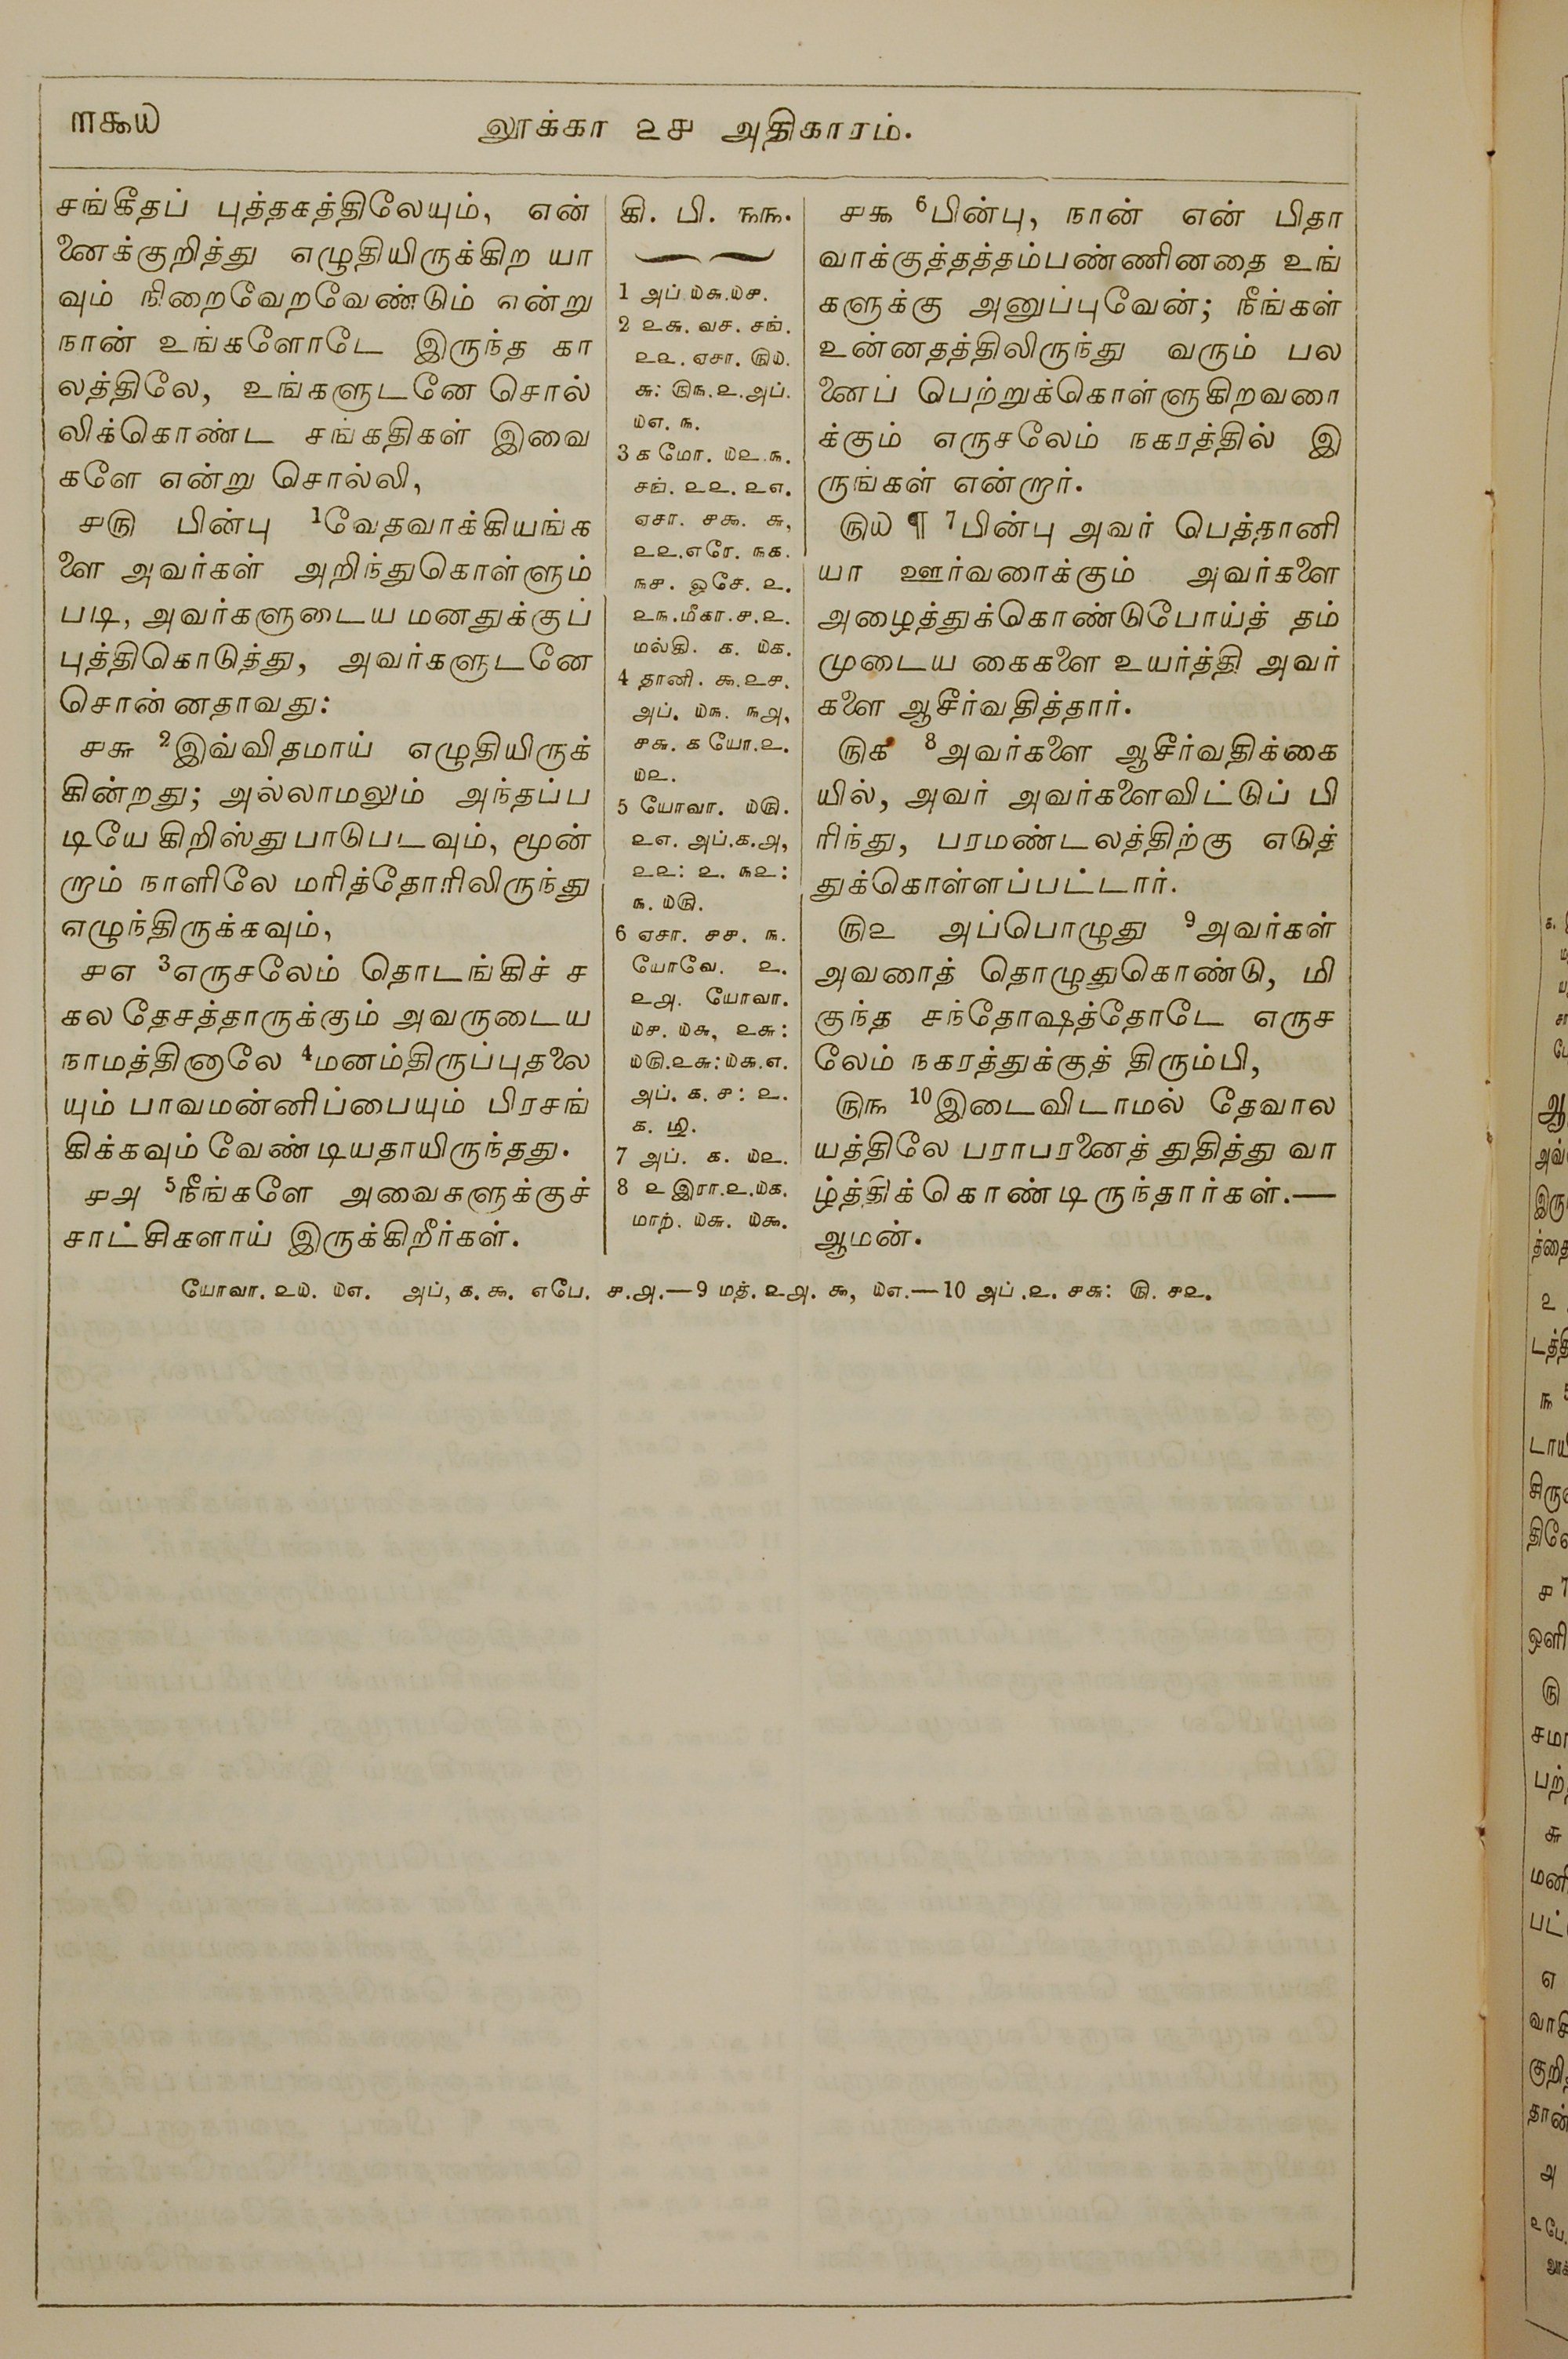 ௱௯௰
லூக்கா ௨௪ அதிகாரம்.
சங்கீதப் புத்தகத்திலேயும், என்
னைக்குறித்து எழுதியிருக்கிற யா
வும் நிறைவேறவேண்டும் என்று
நான் உங்களோடே இருந்த கா
லத்திலே, உங்களுடனே சொல்
லிக்கொண்ட சங்கதிகள் இவை
களே என்று சொல்லி,
௪௫ பின்பு 1வேதவாக்கியங்க
ளை அவர்கள் அறிந்துகொள்ளும்
படி, அவர்களுடைய மனதுக்குப்
புத்திகொடுத்து, அவர்களுடனே
சொன்னதாவது:
௪௬ 2இவ்விதமாய் எழுதியிருக்
கின்றது; அல்லாமலும் அந்தப்ப
டியே கிறிஸ்து பாடுபடவும், மூன்
றாம் நாளிலே மரித்தோரிலிருந்து
எழுந்திருக்கவும்,
௪௭ 3எருசலேம் தொடங்கிச் ச
கல தேசத்தாருக்கும் அவருடைய
நாமத்தினாலே 4மனம்திருப்புதலை
யும் பாவமன்னிப்பையும் பிரசங்
கிக்கவும் வேண்டியதாயிருந்தது.
௪௮ 5நீங்களே அவைகளுக்குச்
சாட்சிகளாய் இருக்கிறீர்கள்.
கி. பி. ௩௩.
1 அப் ௰௬.௰௪.
2 ௨௬. வச. சங்.
௨௨. ஏசா. ௫௰.
௬: ௫௩.௨.அப்.
௰௭. ௩.
3 ௧ மோ. ௰௨.௩.
சங். ௨௨. ௨௭.
ஏசா. ௪௯. ௬,
௨௨.எரே. ௩௧.
௩௪. ஓசே. ௨.
௨௩.மீகா.௪.௨.
மல்கி. ௧. ௰௧.
4 தானி. ௯.௨௪.
அப். ௰௩. ௩௮,
௪௬. ௧ யோ.௨.
௰௨.
5 யோவா. ௰௫.
௨௭. அப்.௧.௮,
௨௨: ௨. ௩௨:
௩. ௰௫.
6 ஏசா. ௪௪. ௩.
யோவே. ௨.
௨௮. யோவா.
௰௪. ௰௬, ௨௬:
௰௫.௨௬:௰௬.௭.
அப். ௧. ௪: ௨.
௧.
7 அப். ௧. ௰௨.
8 ௨ இரா.௨.௰௧.
மாற். ௰௬. ௰௯.
௪௯ 6பின்பு, நான் என் பிதா
வாக்குத்தத்தம்பண்ணினதை உங்
களுக்கு அனுப்புவேன்; நீங்கள்
உன்னதத்திலிருந்து வரும் பல
னைப் பெற்றுக்கொள்ளுகிறவரை
க்கும் எருசலேம் நகரத்தில் இ
ருங்கள் என்றார்.
௫௰ ¶ 7பின்பு அவர் பெத்தானி
யா ஊர்வரைக்கும் அவர்களை
அழைத்துக்கொண்டுபோய்த் தம்
முடைய கைகளை உயர்த்தி அவர்
களை ஆசீர்வதித்தார்.
௫௧ 8அவர்களை ஆசீர்வதிக்கை
யில், அவர் அவர்களைவிட்டுப் பி
ரிந்து, பரமண்டலத்திற்கு எடுத்
துக்கொள்ளப்பட்டார்.
௫௨ அப்பொழுது 9அவர்கள்
அவரைத் தொழுதுகொண்டு, மி
குந்த சந்தோஷத்தோடே எருச
லேம் நகரத்துக்குத் திரும்பி,
௫௩ 10இடைவிடாமல் தேவால
யத்திலே பராபரனைத் துதித்து வா
ழ்த்திக்கொண்டிருந்தார்கள்.—
ஆமன்.
யோவா. ௨௰. ௰௭. அப், ௧. ௯. எபே. ௪.௮.—9 மத். ௨௮. ௯, ௰௭.—10 அப்.௨. ௪௬: ௫. ௪௨.